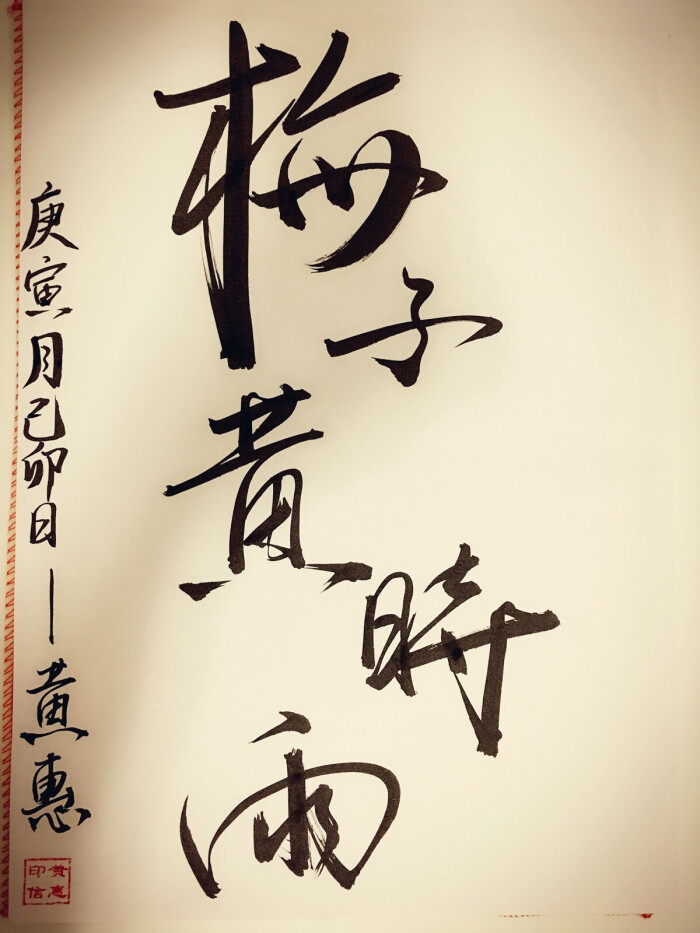 梅子黄時雨
庚寅月己卯日—黄惠
黄惠印信